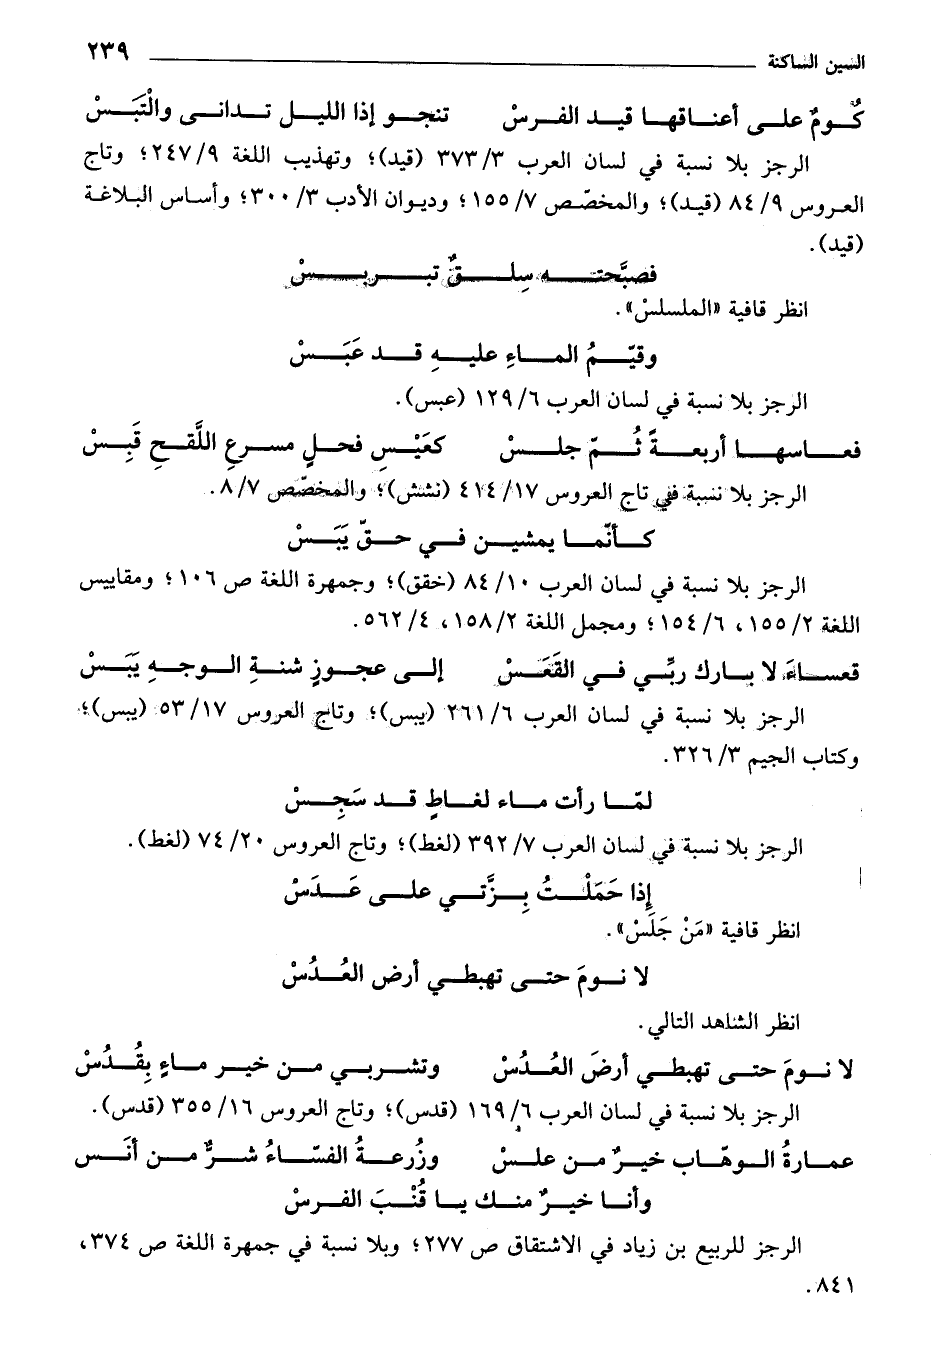 السين الساكنة ٢٣٩
كُومٌ على أعناقها قيد الفرسْ تنجو إذا الليل تدانى والْتَبَسْ
الرجز بلا نسبة في لسان العرب ٣/ ٣٧٣ (قيد)؛ وتهذيب اللغة ٩/ ٢٤٧؛ وتاج
العروس ٩/ ٨٤ (قيد)؛ والمخصّص ٧/ ١٥٥؛ وديوان الأدب ٣/ ٣٠٠؛ وأساس البلاغة
(قيد).
فصبَّحته سِلقٌ تبربسْ
انظر قافية «الملسلسْ».
وقيّمُ الماءِ عليهِ قد عَبَسْ
الرجز بلا نسبة في لسان العرب ٦/ ١٢٩ (عبس).
فعاسها أربعةً ثُمّ جلسْ كعَيْسِ فحلٍ مسرعِ اللَّقحِ قَبِسْ
الرجز بلا نسبة في تاج العروس ١٧/ ٤١٤ (نشش)؛ والمخصّص ٧/ ٨.
كأنّما يمشين في حقّ يَبَسْ
الرجز بلا نسبة في لسان العرب ١٠/ ٨٤ (خقق)؛ وجمهرة اللغة ص ١٠٦؛ ومقاييس
اللغة ٢/ ١٥٥، ٦/ ١٥٤؛ ومجمل اللغة ٢/ ١٥٨، ٤/ ٥٦٢.
قعساءَ لا بارك ربِّي في القَعَسْ إلى عجوزٍ شنةِ الوجهِ يَبَسْ
الرجز بلا نسبة في لسان العرب ٦/ ٢٦١ (يبس)؛ وتاج العروس ١٧/ ٥٣ (يبس)؛
وكتاب الجيم ٣/ ٣٢٦.
لمّا رأت ماء لغاطٍ قد سَجِسْ
الرجز بلا نسبة في لسان العرب ٧/ ٣٩٢ (لغط)؛ وتاج العروس ٢٠/ ٧٤ (لغط).
إِذا حَمَلْتُ بِزَّتي على عَدَسْ
انظر قافية «مَنْ جَلَسْ».
لا نومَ حتى تهبطي أرض العُدُسْ
انظر الشاهد التالي.
لا نومَ حتى تهبطي أرضَ العُدُسْ وتشربي من خير ماءٍ بِقُدُسْ
الرجز بلا نسبة في لسان العرب ٦/ ١٦٩ (قدس)؛ وتاج العروس ١٦/ ٣٥٥ (قدس).
عمارةُ الوهّاب خيرٌ من علسْ وزُرعةُ الفسّاءُ شرٌّ من أنَس
وأنا خيرٌ منك يا قُنْبَ الفرسْ
الرجز للربيع بن زياد في الاشتقاق ص ٢٧٧؛ وبلا نسبة في جمهرة اللغة ص ٣٧٤،
٨٤١.